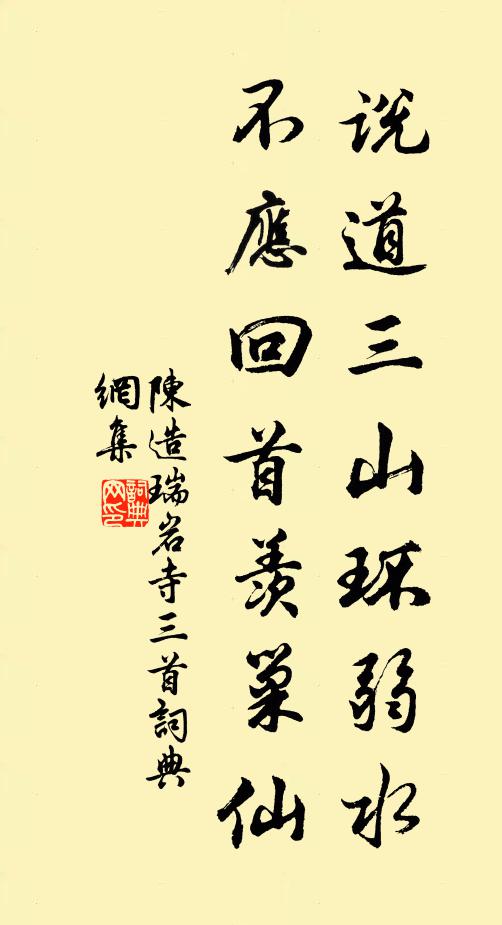 說道三山環弱水
不應回首羨巢仙
陳造瑞岩寺三首詞典
網集
詞典網印